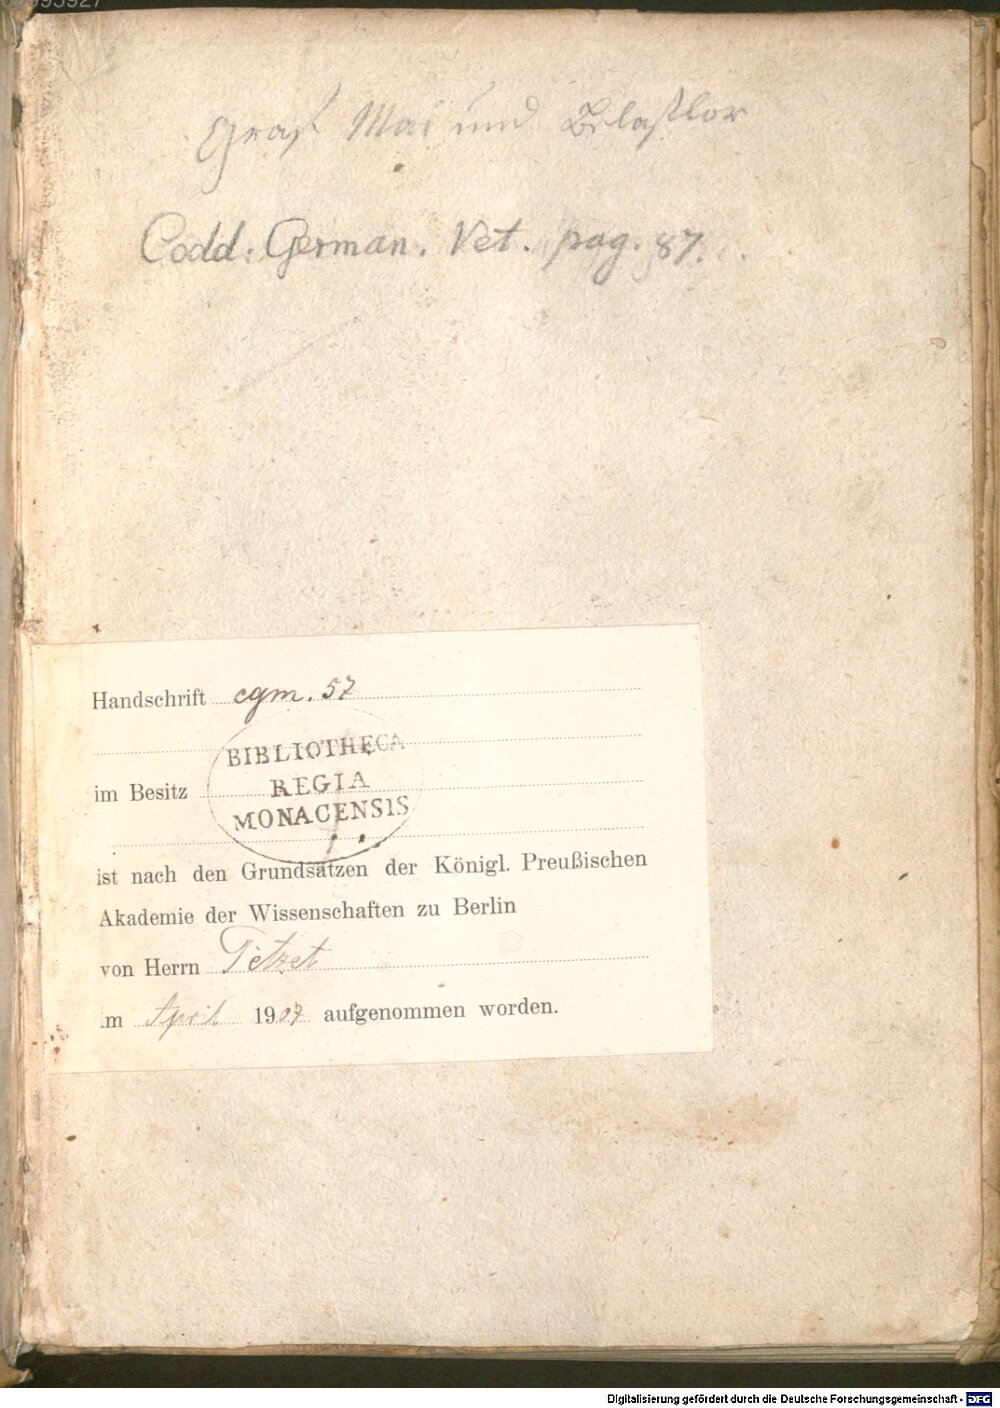 Graf Mai und Belaflor
Codd. German. Vet. pag. 87.
Handschrift cgm. 57
BIBLIOTHECA
REGIA
MONACENSIS
im Besitz
ist nach den Grundsätzen der Königl. Preußischen
Akademie der Wissenschaften zu Berlin
von Herrn Petzet
im April 1907 aufgenommen worden.
Digitalisierung gefördert durch die Deutsche Forschungsgemeinschaft - DFG